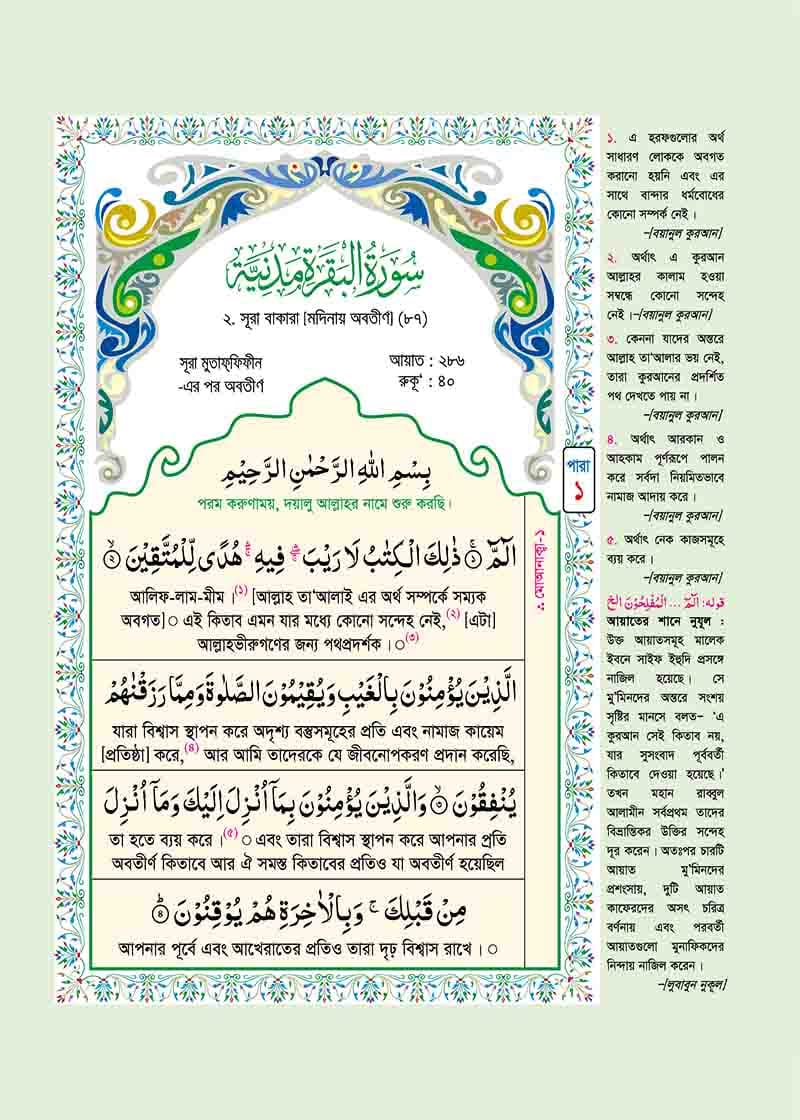 سُوْرَةُ الْبَقَرَةِ مَدَنِيَّةٌ
২. সূরা বাকারা [মদিনায় অবতীর্ণ] (৮৭)
সূরা মুতাফ্ফিফীন
-এর পর অবতীর্ণ
আয়াত : ২৮৬
রুকূ‘ : ৪০
بِسْمِ اللّٰهِ الرَّحْمٰنِ الرَّحِيْمِ
পরম করুণাময়, দয়ালু আল্লাহর নামে শুরু করছি।
الٓمّٓ ۚ﴿۱﴾ ذٰلِكَ الْكِتٰبُ لَا رَيْبَ ۛۖ فِيْهِ ۛۚ هُدًى لِّلْمُتَّقِيْنَ ۙ﴿۲﴾
আলিফ-লাম-মীম।(১) [আল্লাহ তা‘আলাই এর অর্থ সম্পর্কে সম্যক
অবগত]○ এই কিতাব এমন যার মধ্যে কোনো সন্দেহ নেই,(২) [এটা]
আল্লাহভীরুগণের জন্য পথপ্রদর্শক।○(৩)
الَّذِيْنَ يُؤْمِنُوْنَ بِالْغَيْبِ وَيُقِيْمُوْنَ الصَّلٰوةَ وَمِمَّا رَزَقْنٰهُمْ
যারা বিশ্বাস স্থাপন করে অদৃশ্য বস্তুসমূহের প্রতি এবং নামাজ কায়েম
[প্রতিষ্ঠা] করে,(৪) আর আমি তাদেরকে যে জীবনোপকরণ প্রদান করেছি,
يُنْفِقُوْنَ ۙ﴿۳﴾ وَالَّذِيْنَ يُؤْمِنُوْنَ بِمَآ اُنْزِلَ اِلَيْكَ وَمَآ اُنْزِلَ
তা হতে ব্যয় করে।(৫) ○ এবং তারা বিশ্বাস স্থাপন করে আপনার প্রতি
অবতীর্ণ কিতাবে আর ঐ সমস্ত কিতাবের প্রতিও যা অবতীর্ণ হয়েছিল
مِنْ قَبْلِكَ ۚ وَبِالْاٰخِرَةِ هُمْ يُوْقِنُوْنَ ؕ﴿۴﴾
আপনার পূর্বে এবং আখেরাতের প্রতিও তারা দৃঢ় বিশ্বাস রাখে। ○
পারা
১
১. এ হরফগুলোর অর্থ
সাধারণ লোককে অবগত
করানো হয়নি এবং এর
সাথে বান্দার ধর্মবোধের
কোনো সম্পর্ক নেই।
–[বয়ানুল কুরআন]
২. অর্থাৎ এ কুরআন
আল্লাহর কালাম হওয়া
সম্বন্ধে কোনো সন্দেহ
নেই।–[বয়ানুল কুরআন]
৩. কেননা যাদের অন্তরে
আল্লাহ তা‘আলার ভয় নেই,
তারা কুরআনের প্রদর্শিত
পথ দেখতে পায় না।
–[বয়ানুল কুরআন]
৪. অর্থাৎ আরকান ও
আহকাম পূর্ণরূপে পালন
করে সর্বদা নিয়মিতভাবে
নামাজ আদায় করে।
–[বয়ানুল কুরআন]
৫. অর্থাৎ নেক কাজসমূহে
ব্যয় করে।
–[বয়ানুল কুরআন]
قوله: الٓمّٓ ... الْمُفْلِحُوْنَ الخ
আয়াতের শানে নুযূল :
উক্ত আয়াতসমূহ মালেক
ইবনে সাইফ ইহুদি প্রসঙ্গে
নাজিল হয়েছে। সে
মু’মিনদের অন্তরে সংশয়
সৃষ্টির মানসে বলত– ‘এ
কুরআন সেই কিতাব নয়,
যার সুসংবাদ পূর্ববর্তী
কিতাবে দেওয়া হয়েছে।’
তখন মহান রাব্বুল
আলামীন সর্বপ্রথম তাদের
বিভ্রান্তিকর উক্তির সন্দেহ
দূর করেন। অতঃপর চারটি
আয়াত মু’মিনদের
প্রশংসায়, দুটি আয়াত
কাফেরদের অসৎ চরিত্র
বর্ণনায় এবং পরবর্তী
আয়াতগুলো মুনাফিকদের
নিন্দায় নাজিল করেন।
–[লুবাবুন নুকূল]